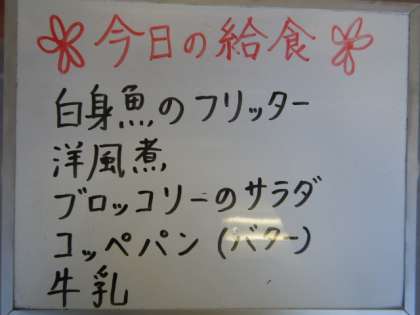 今日の給食
白身魚のフリッター
洋風煮
ブロッコリーのサラダ
コッペパン(バター)
牛乳